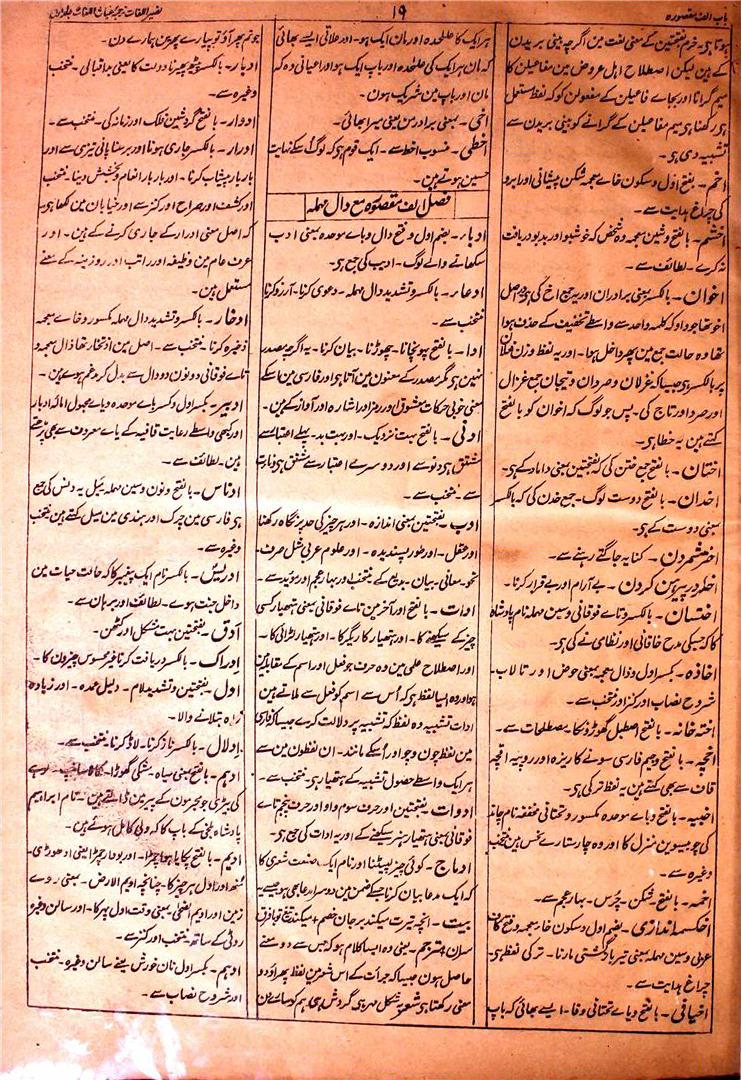 باب الف مقصورہ
۱۹
ہوتا ہی۔ خرم بفتحتین کے معنی لغت مین اگرچہ بینی بریدن
کے ہین لیکن اصطلاح اہل عروض مین مفاعیلن کا
میم گرانا اور بجاے فاعیلن کے مفعولن کو کہ لفظ مستعمل
ہی رکھنا ہی میم مفاعیلن کے گرانے کو بینی بریدن سے
تشبیہ دی ہی۔
اخم۔ بفتح اول و سکون خاے معجمہ شکن پیشانی اور ابرو
کی چراغ ہدایت سے۔
اخشم۔ بالفتح و شین معجمہ وہ شخص کہ خوشبو اور بدبو دریافت
نہ کرے۔ لطائف سے۔
اخوان۔ بالکسر بمعنی برادران اور یہ جمع اخ کی ہی در اصل
اخو تھا جو واو کہ کلمہ واحد سے واسطے تخفیف کے حذف ہوا
تھا وہ حالت جمع مین پھر داخل ہوا۔ اور یہ لفظ وزن فعلان
پر بالکسر ہی جیسا کہ غزلان و صردان و تیجان جمع غزال
اور صرد اور تاج کی۔ پس جو لوگ کہ اخوان کو بالفتح
کہتے ہین یہ خطا ہی۔
اختان۔ بالفتح جمع ختن کی کہ بفتحتین بمعنی داماد کے ہی۔
اخدان۔ بالفتح دوست لوگ۔ جمع خدن کی کہ بالکسر
بمعنی دوست کے ہی۔
اختر شمردن۔ کنایہ جاگتے رہنے سے۔
اخگر در پیرہن کردن۔ بے آرام اور بے قرار کرنا۔
اختسان۔ بالکسر و تاے فوقانی و سین مہملہ نام بادشاہ
کا کہ جسکی مدح خاقانی اور نظامی نے کی ہی۔
اخاذہ۔ بکسر اول و ذال معجمہ بمعنی حوض اور تالاب۔
شروح نصاب اور کنز اور منتخب سے۔
اختہ خانہ۔ بالفتح اصطبل گھوڑونکا۔ مصطلحات سے۔
اخچہ۔ بالفتح و جیم فارسی سونے کا ریزہ اور روپیہ اقچہ
قاف سے بھی کہتے ہین یہ لفظ ترکی ہی۔
اخبیہ۔ بالفتح و باے موحدہ مکسور و تحتانی مخففہ نام چاند
کی چوبیسوین منزل کا اور وہ چار ستارے نحس ہین منتخب
وغیرہ سے۔
اخمہ۔ بالفتح شکن۔ چرس۔ بہار عجم سے۔
اخکسہ اندازی۔ بضم اول و سکون خاے معجمہ و فتح کاف
عربی و سین مہملہ بمعنی تیر بازگشتی مارنا۔ ترکی لفظ ہی۔
چراغ ہدایت سے۔
اخیافی۔ بالفتح و یاے تحتانی و فا۔ ایسے بھائی کہ باپ
ہر ایک کا علٰحدہ اور مان ایک ہو۔ اور علاتی ایسے بھائی
کہ مان ہر ایک کی علٰحدہ اور باپ ایک ہو اور اعیانی وہ کہ
مان اور باپ مین شریک ہون۔
اخی۔ بمعنی برادر من یعنی میرا بھائی۔
اخطی۔ منسوب اخط سے۔ ایک قوم ہی کہ لوگ اسکے نہایت
حسین ہوتے ہین۔
فصل الف مقصورہ مع دال مہملہ
ادبا۔ بضم اول و فتح دال و باے موحدہ بمعنی ادب
سکھانے والے لوگ۔ ادیب کی جمع ہی۔
ادعا۔ بالکسر و تشدید دال مہملہ۔ دعوی کرنا۔ آرزو کرنا
منتخب سے۔
ادا۔ بالفتح پہونچانا۔ چھوڑنا۔ بیان کرنا۔ یہ اگرچہ مصدر
نہین ہی مگر مصدر کے معنون مین آتا ہی اور فارسی مین اسکے
معنی خوبی حرکات معشوق اور رمز اور اشارہ اور آواز کے ہین۔
ادنی۔ بالفتح بہت نزدیک۔ اور بہت بد۔ پہلے اعتبار سے
مشتق ہی دنو سے اور دوسرے اعتبار سے مشتق ہی دنائت
سے۔ منتخب سے۔
ادب۔ بفتحتین بمعنی اندازہ۔ اور ہر چیز کی حد پر نگاہ رکھنا
اور عقل۔ اور طور پسندیدہ۔ اور علوم عربی مثل صرف۔
نحو۔ معانی۔ بیان۔ بدیع کے۔ منتخب اور بہار عجم اور مؤید سے۔
ادات۔ بالفتح اور آخر مین تاے فوقانی بمعنی ہتھیار کسی
چیز کے سیکھنے کا۔ اور ہتھیار کاریگر کا۔ اور ہتھیار لڑائی کا۔
اور اصطلاح علمی مین وہ حرف جو فعل اور اسم کے مقابل مین
ہو اور وہ ایسا لفظ ہی کہ اُس سے اسم کو فعل سے ملاتے ہین
ادات تشبیہ وہ لفظ کہ تشبیہ پر دلالت کرے جیسا کہ فارسی
مین لفظ چون و چو اور اسکے مانند۔ ان لفظون مین سے
ہر ایک واسطے حصول تشبیہ کے ہتھیار ہی۔ منتخب سے۔
ادوات۔ بفتحتین اور حرف سوم واو اور حرف پنجم تاے
فوقانی بمعنی ہتھیار ہنر سیکھنے کے اور یہ ادات کی جمع ہی۔
ادماج۔ کوئی چیز لپیٹنا اور نام ایک صنعت شعری کا
کہ ایک مدعا بیان کرنا جسکے ضمن مین دوسرا مدعا بھی ہو جیسے
بیت۔ انچہ تیرت میکند بر جان خصم + میکند تیغ تو از فرق
سران + ترجمہ۔ یعنی وہ ایسا کلام ہو کہ جس سے دو معنے
حاصل ہون جیسا کہ جرأت کے اس شعر مین لفظ پھراؤ دو
معنی رکھتا ہی شعر بہ شکل مہر ہی گردش ہی ہم کو سارے دن
جو تم پھر آؤ تو پیارے پھرین ہمارے دن۔
ادبار۔ بالکسر پیٹھ پھیرنا دولت کا یعنی بداقبالی۔ منتخب
وغیرہ سے۔
ادوار۔ بالفتح گردشین فلک اور زمانہ کی۔ منتخب سے۔
ادرار۔ بالکسر جاری ہونا اور برسنا پانی تیزی سے اور
بار بار پیشاب کرنا۔ اور بار بار انعام و بخشش دینا۔ منتخب
اور کشف اور صراح اور کنز سے اور خیابان مین لکھا ہی
کہ اصل معنی ادرار کے جاری کرنے کے ہین۔ اور
عرف عام مین وظیفہ اور راتب اور روزینہ کے معنے
مستعمل ہین۔
ادخار۔ بالکسر و تشدید دال مہملہ مکسور و خاے معجمہ
ذخیرہ کرنا۔ منتخب سے۔ اصل مین اذتخار تھا ذال معجمہ و
تاے فوقانی دونون دو دال سے بدل کر مدغم ہوے ہین۔
ادبیر۔ بکسر اول و کسر باے موحدہ و یاے مجہول امالہ ادبار
اور کبھی واسطے رعایت قافیہ کے یاے معروف سے بھی پڑھتے
ہین۔ لطائف سے۔
ادناس۔ بالفتح و نون و سین مہملہ میل یہ دنس کی جمع
ہی فارسی مین چرک اور ہندی مین میل کہتے ہین منتخب
وغیرہ سے۔
ادریس۔ بالکسر نام ایک پیغمبر کا کہ حالت حیات مین
داخل جنت ہوے۔ لطائف اور برہان سے۔
ادق۔ بفتحتین بہت مشکل اور کٹھن۔
ادراک۔ بالکسر دریافت کرنا غیر محسوس چیزون کا۔
ادل۔ بفتحتین و تشدید لام۔ دلیل عمدہ۔ اور زیادہ
راہ بتلانے والا۔
ادلال۔ بالکسر ناز کرنا۔ لاڈ کرنا۔ منتخب سے۔
ادہم۔ بالفتح بمعنی سیاہ مشکی گھوڑا۔ لوہے
کی بیڑی جو مجرمون کے پیر مین ڈالتے ہین۔ نام ابراہیم
بادشاہ بلخ کے باپ کا کہ ولی کامل ہوئے ہین۔
ادیم۔ بالفتح پکایا ہوا چمڑا۔ اور بودار چمڑا یعنی ادھوڑی۔
منھ اور اول ہر چیز کا۔ چنانچہ ادیم الارض۔ بمعنی روے
زمین اور ادیم الضحیٰ بمعنی وقت اول پہر کا۔ اور سالن وغیرہ
روٹی کے ساتھ۔ منتخب اور کنز سے۔
ادیم۔ بکسر اول نان خورش یعنے سالن وغیرہ۔ منتخب
اور شروح نصاب سے۔